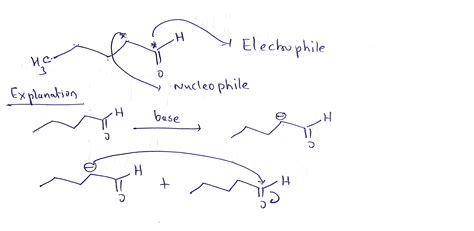 H
Electrophile
H₃C
O
nucleophile
Explanation
H
O
base
⊖
H
O
⊖
H
O
+
H
O